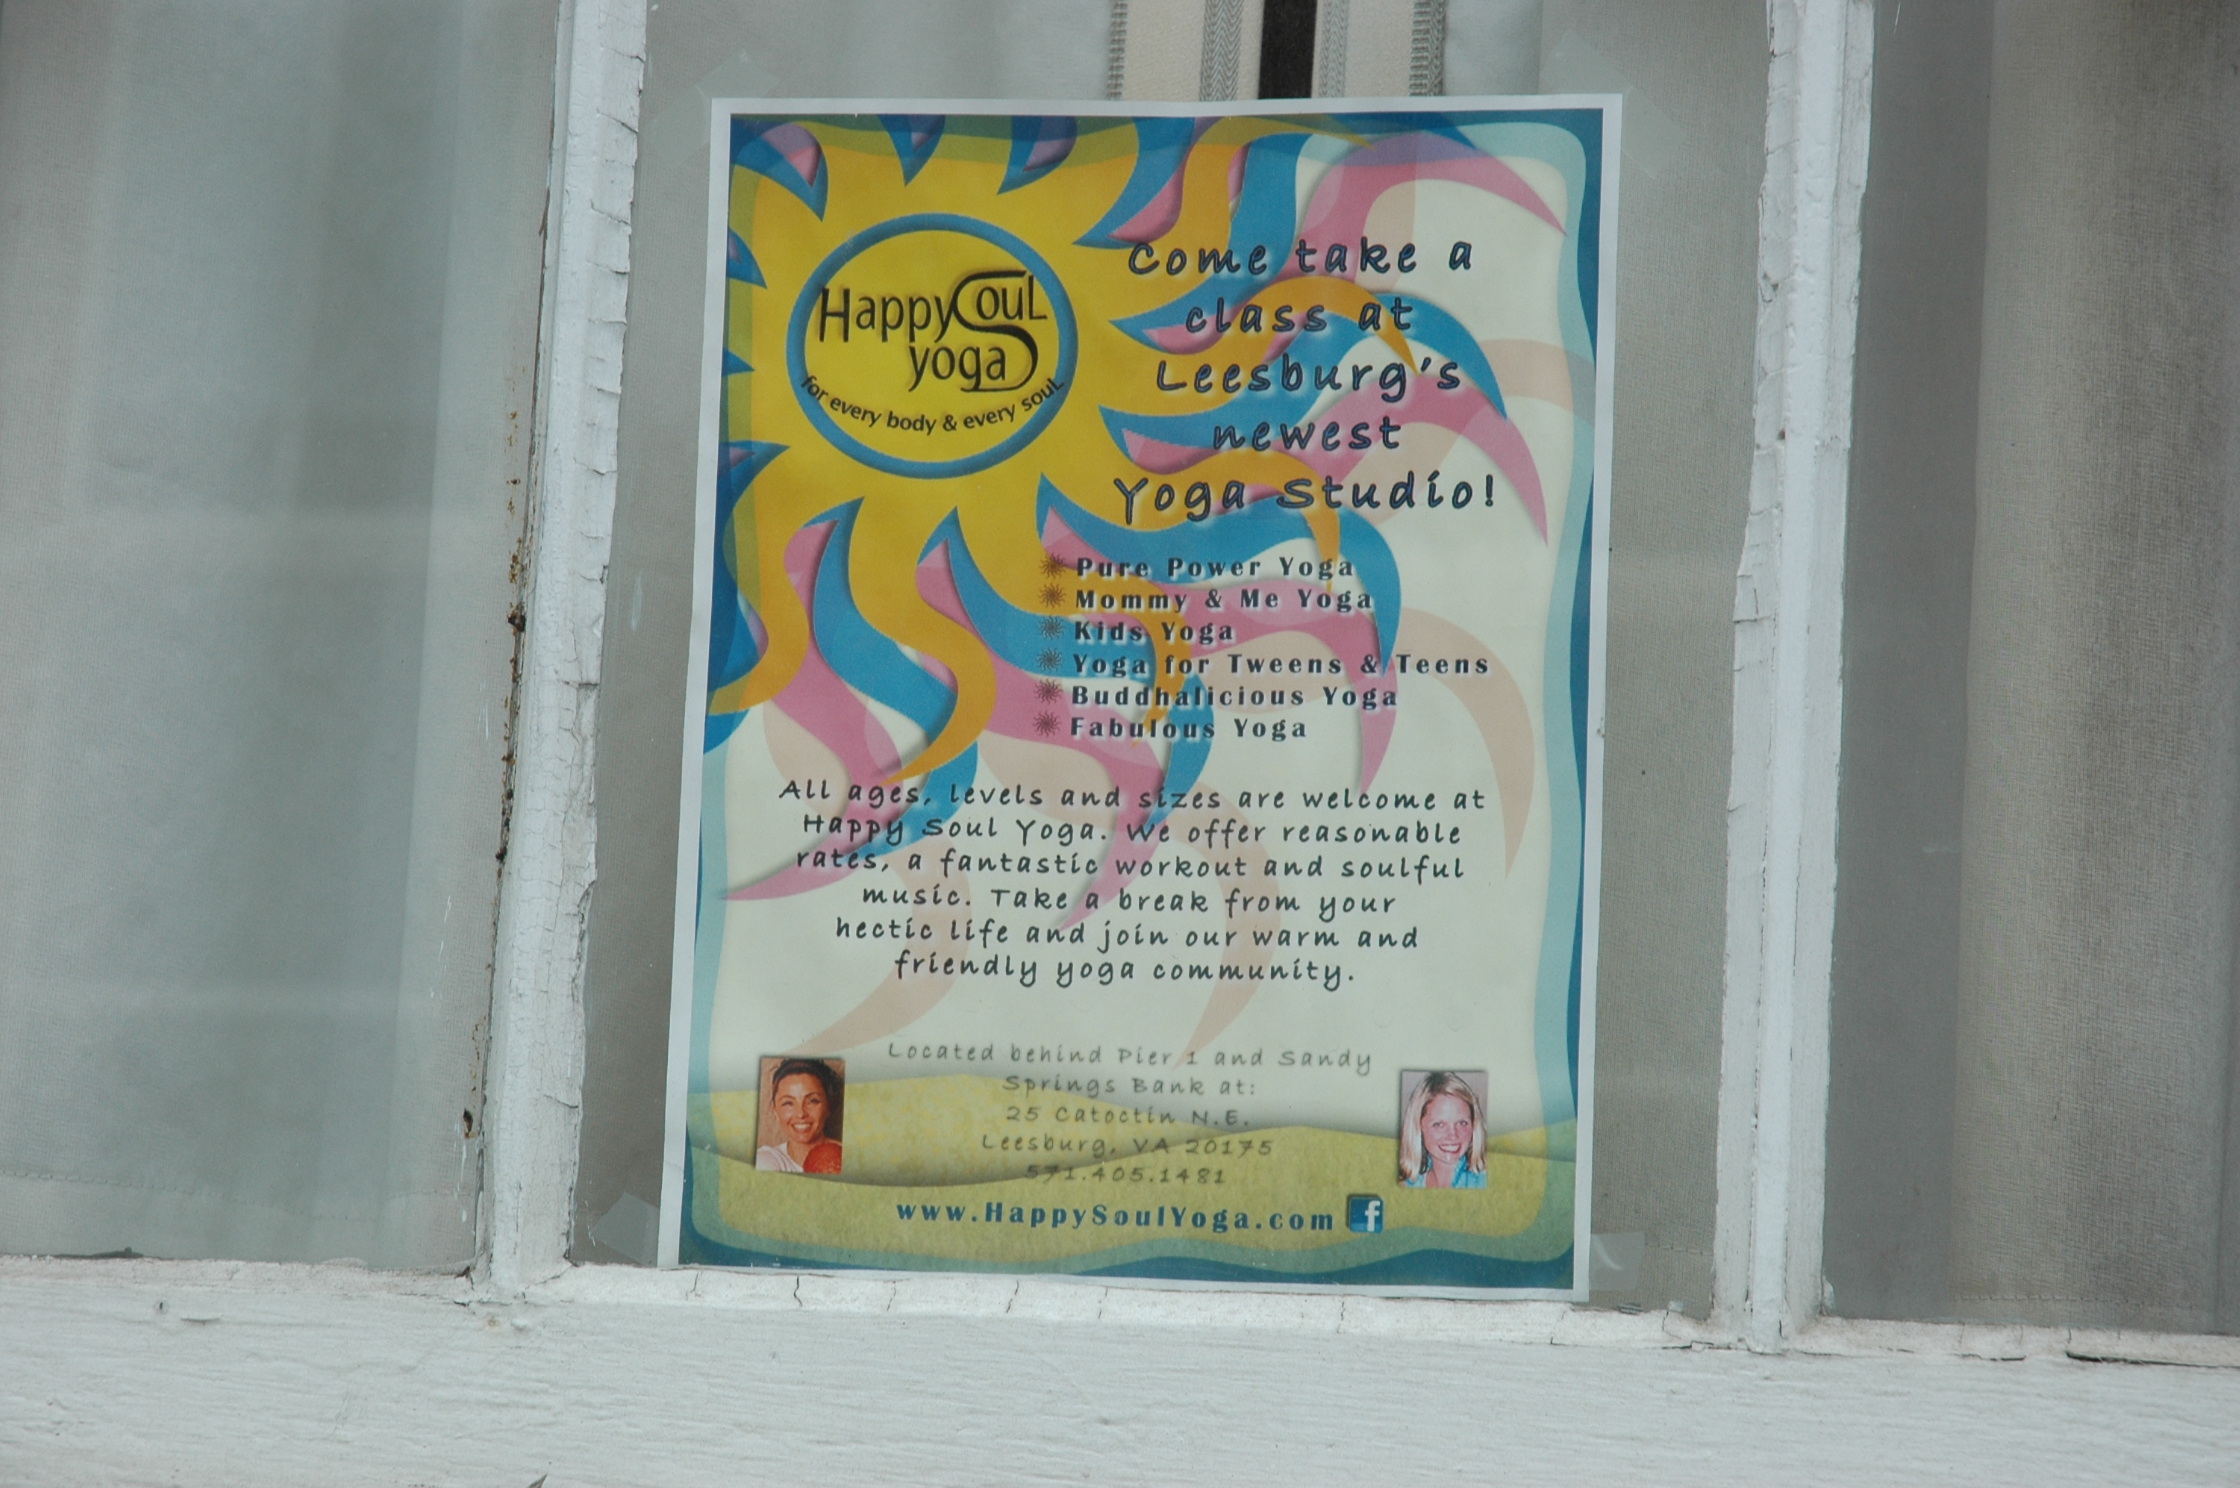 Happy Soul
yoga
for every body & every soul
Come take a
class at
Leesburg's
newest
Yoga Studio!
Pure Power Yoga
Mommy & Me Yoga
Kids Yoga
Yoga for Tweens & Teens
Buddhalicious Yoga
Fabulous Yoga
All ages, levels and sizes are welcome at
Happy Soul Yoga. We offer reasonable
rates, a fantastic workout and soulful
music. Take a break from your
hectic life and join our warm and
friendly yoga community.
Located behind Pier 1 and Sandy
Springs Bank at:
25 Catoctin N.E.
Leesburg, VA 20175
571.405.1481
www.HappySoulYoga.com f